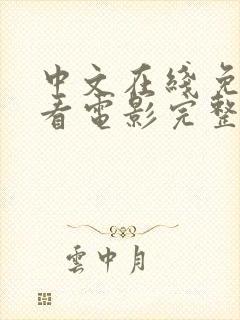 中文在綫免
看電影完整
雲中月